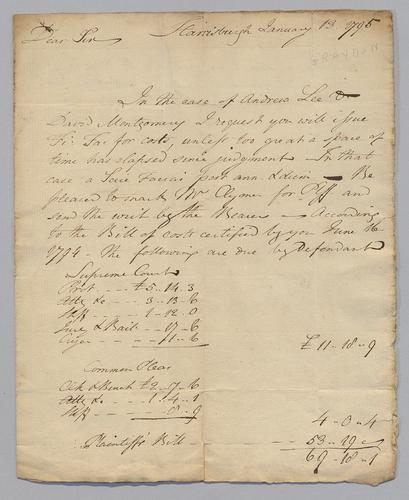 Dear Sir Harrisburgh January 13. 1795
GRAYDON
In the case of Andrew Lee &
David Montgomery I request you will issue
Fi: Fa: for costs, unless too great a space of
time has elapsed since judgment - In that
case a Scire Facias post ann. & diem - Be
pleased to mark Mr Clymer for Plff and
send the writ by the Bearer - According
to the Bill of costs certified by you June 16
1794 - The following are due by Defendant
Supreme Court
Prot. - - - £5 - 14 - 3
Atty do - - 3 - 13 - 6
Shff - - - 1 - 12 - 0
& Bail - - 17 - 6
Cryer - - - 11 - 6
£ 11 - 18 - 9
Common Pleas
Clk & Bench £2 - 7 - 6
Atty do - - - 1 - 4 - 1
Shff - - - - 8 - 9
4 - 0 - 4
Plaintiff's Bill - - 53 - 19 -
69 - 18 - 1